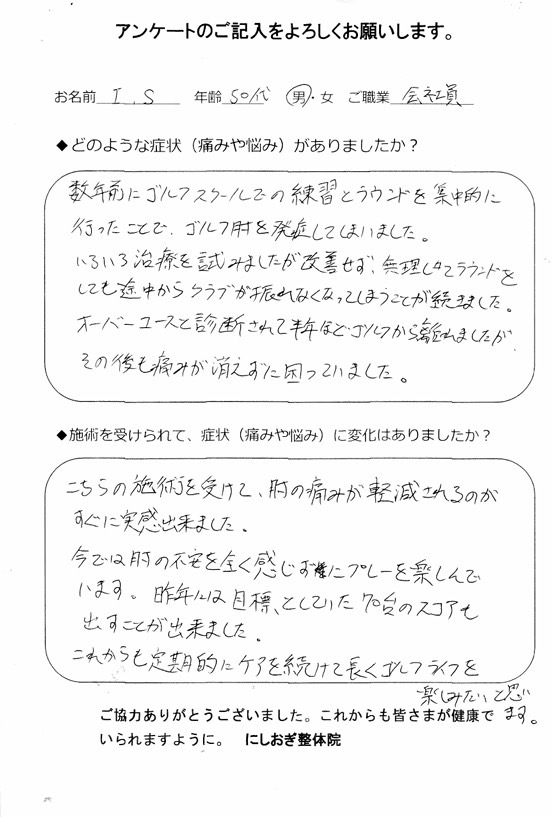 アンケートのご記入をよろしくお願いします。
お名前 I.S 年齢 50代 男・女 ご職業 会社員
◆どのような症状（痛みや悩み）がありましたか？
数年前にゴルフスクールでの練習とラウンドを集中的に
行ったことで、ゴルフ肘を発症してしまいました。
いろいろ治療を試みましたが改善せず、無理してラウンドを
しても途中からクラブが振れなくなってしまうことが続きました。
オーバーユースと診断されて半年ほどゴルフから離れましたが
その後も痛みが消えずに困っていました。
◆施術を受けられて、症状（痛みや悩み）に変化はありましたか？
こちらの施術を受けて、肘の痛みが軽減されるのが
すぐに実感出来ました。
今では肘の不安を全く感じずにプレーを楽しんで
います。昨年には目標としていた70台のスコアも
出すことが出来ました。
これからも定期的にケアを続けて長くゴルフライフを
楽しみたいと思い
ます。
ご協力ありがとうございました。これからも皆さまが健康で
いられますように。 にしおぎ整体院